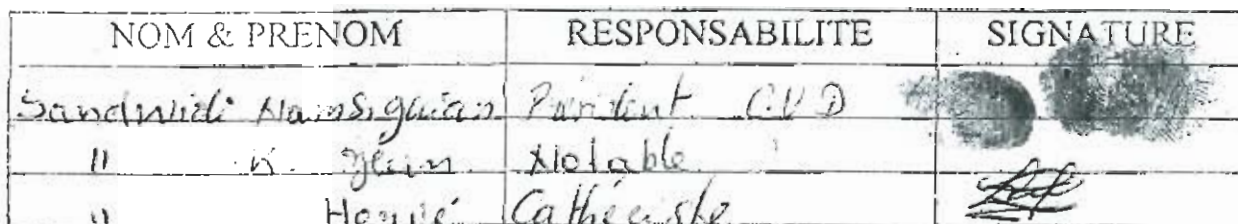 NOM & PRENOM RESPONSABILITE SIGNATURE
Sandwidi Président CVD
" K. Jean Notable
" Hervé Cathéciste